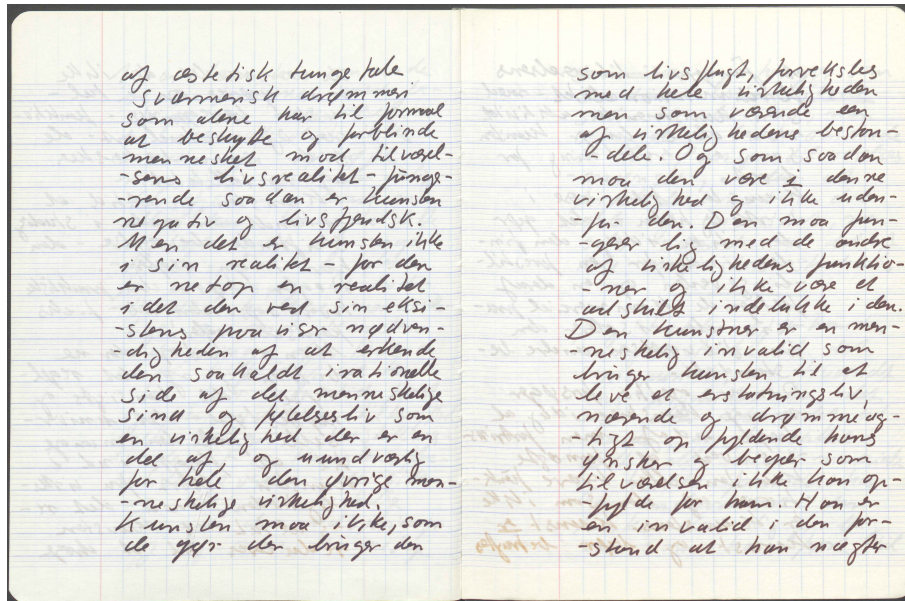 af æstetisk tungetale
sværmerisk drømmeri
som alene har til formaal
at beskytte og forblinde
mennesket mod tilværel-
-sens livsrealitet - funge-
-rende saadan er kunsten
negativ og livsfjendsk.
Men det er kunsten ikke
i sin realitet - for den
er netop en realitet
idet den ved sin eksi-
-stens paaviser nødven-
-digheden af at erkende
den saakaldt irationelle
side af det menneskelige
sind og følelsesliv som
en virkelighed der er en
del af og uundværlig
for hele den øvrige men-
-neskelige virkelighed.
Kunsten maa ikke, som
de gør der bruger den
som livsflugt, forveksles
med hele virkeligheden
men som værende een
af virkelighedens bestan-
-dele. Og som saadan
maa den være i denne
virkelighed og ikke uden-
-for den. Den maa fun-
-gerer lig med de andre
af virkelighedens funktio-
-ner og ikke være et
adskildt indelukke i den.
Den kunstner er en men-
-neskelig invalid som
bruger kunsten til at
leve et erstatningsliv,
nærende og drømmeag-
-tigt opfyldende hans
ønsker og begær som
tilværelsen ikke kan op-
-fylde for ham. Han er
en invalid i den for-
-stand at han nægter